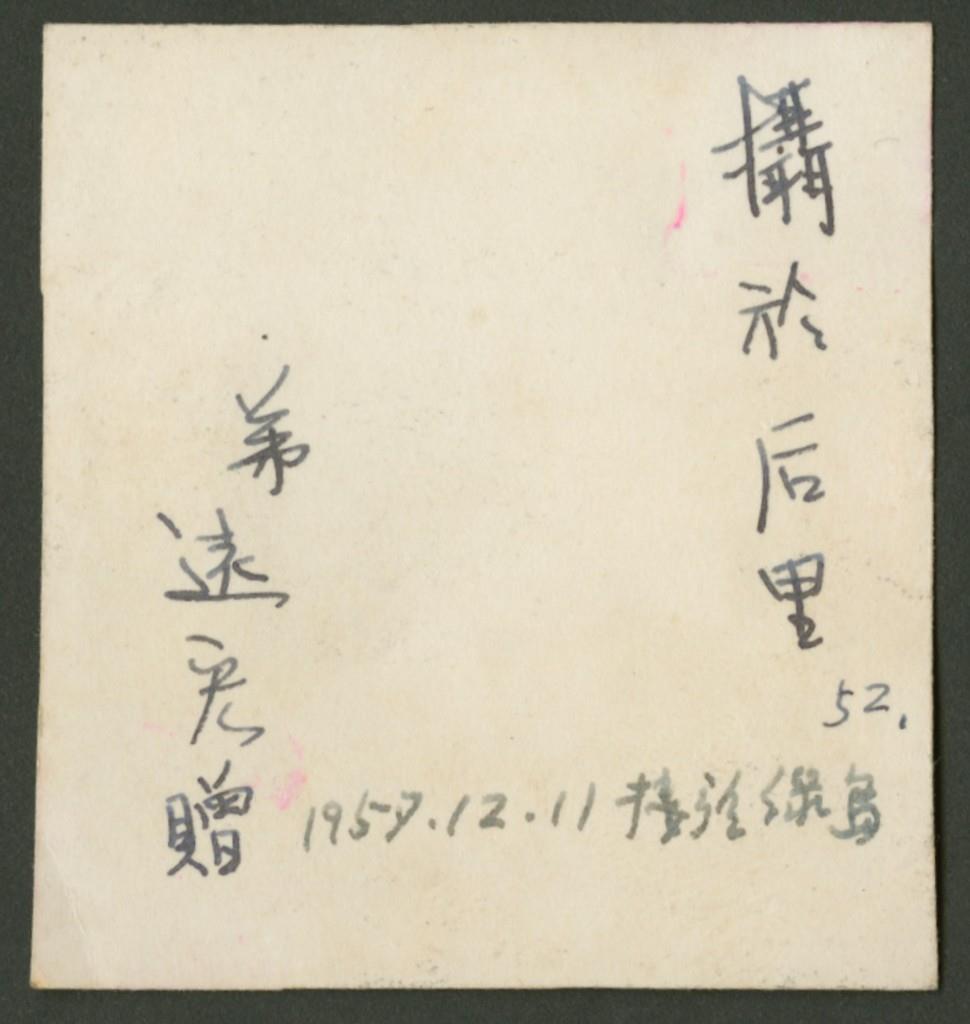 攝於后里
52.
弟
遠宏贈
1957.12.11 接於綠島